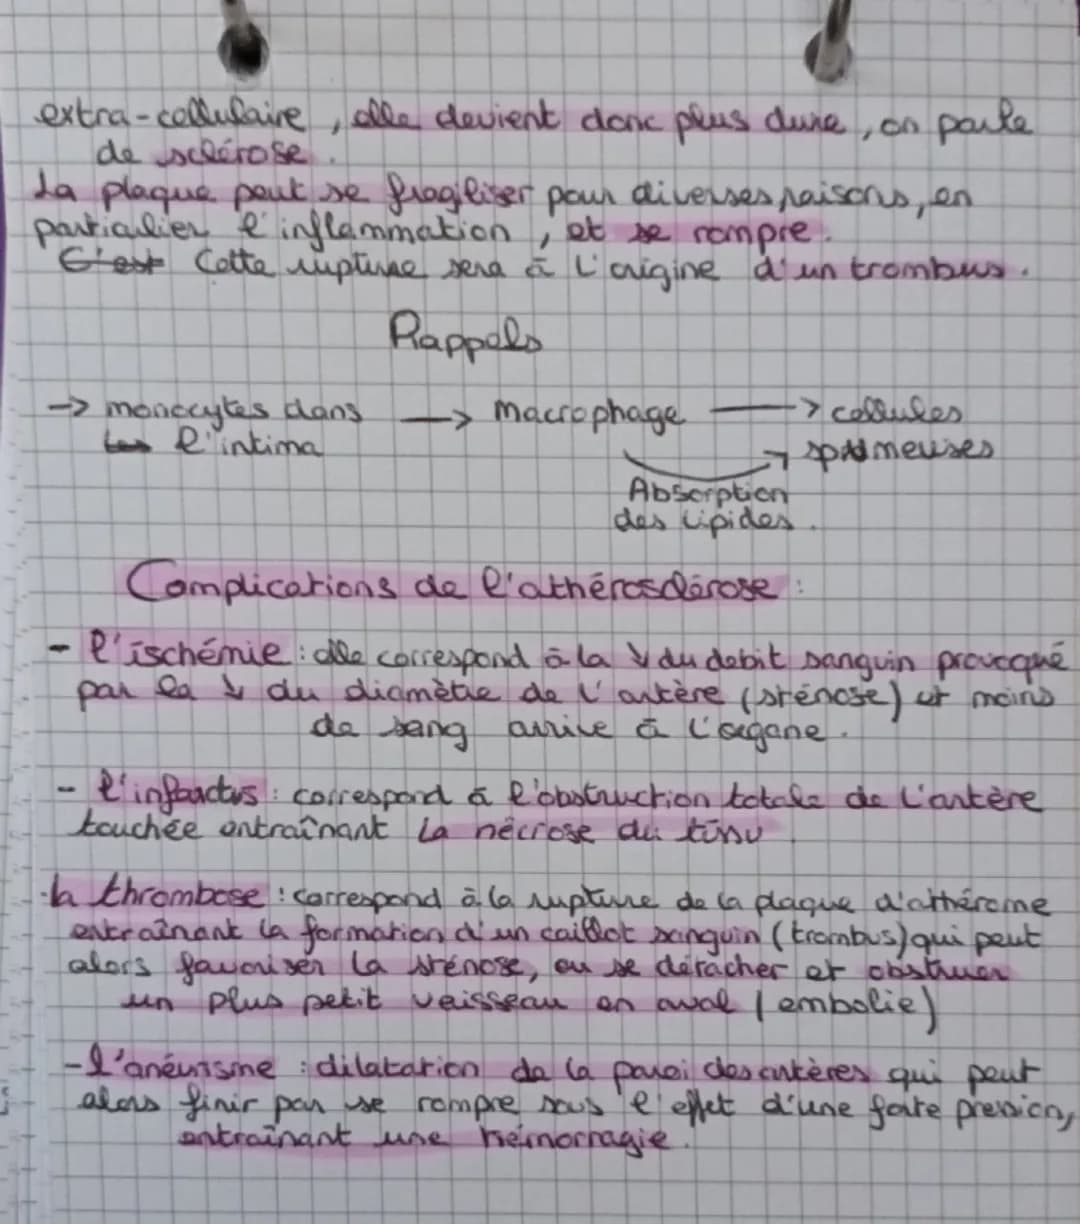 extra-cellulaire, elle devient donc plus dure, on parle
de sclérose.
La plaque peut se fragiliser pour diverses raisons, en
particulier l'inflammation, et se rompre.
C'est Cette rupture sera à l'origine d'un trombus.
Rappels
-> monocytes dans -> macrophage -> cellules
l'intima spumeuses
Absorption
des lipides.
Complications de l'athérosclérose :
- l'ischémie : elle correspond à la ↓ du debit sanguin provoqué
par la ↓ du diamètre de l'artère (sténose) et moins
de sang arrive à l'organe.
- l'infarctus : correspond à l'obstruction totale de l'artère
touchée entraînant la nécrose du tissu
- la thrombose : correspond à la rupture de la plaque d'athérome
entraînant la formation d'un caillot sanguin (trombus) qui peut
alors favoriser la sténose, ou se détacher et obstruer
un plus petit vaisseau en aval (embolie)
- l'anévrisme : dilatation de la paroi des artères qui peut
alors finir par se rompre sous l'effet d'une forte pression,
entraînant une hémorragie.